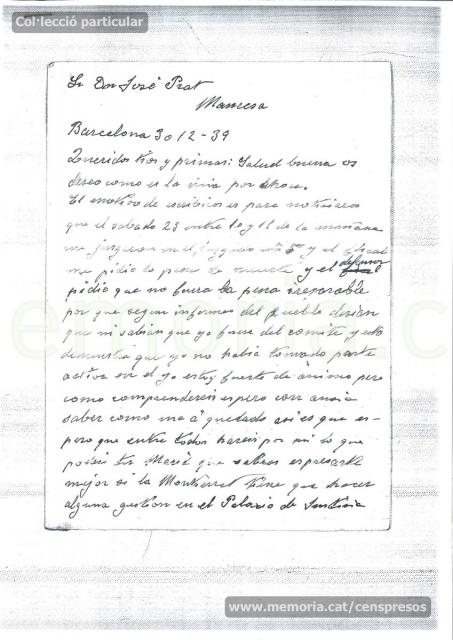 Col·lecció particular
Sr Don José Prat
Manresa
Barcelona 30 12-39
Queridos tios y primas: Salud buena os
deseo como es la mia por ahora.
El motivo de escribiros es para notificaros
que el sabado 23 entre 10 y 11 de la mañana
me juzgaron en el juzgado nº 5º y el fiscal
me pidio la pena de muerte y el defensor
pidio que no fuera la pena ireparable
por que segun informes del pueblo desian
que ni sabian que yo fuese del comite y esto
demuestra que yo no habia tomado parte
activa en el yo estoy fuerte de ánimo pero
como comprendereis espero con ansia
saber como me á quedado asi es que es-
pero que entre todos hareis por mi lo que
podeis tia Maria que sabras espresarte
mejor si la Montserrat tiene que hacer
alguna gestion en el Palacio de Justicia
www.memoria.cat/censpresos